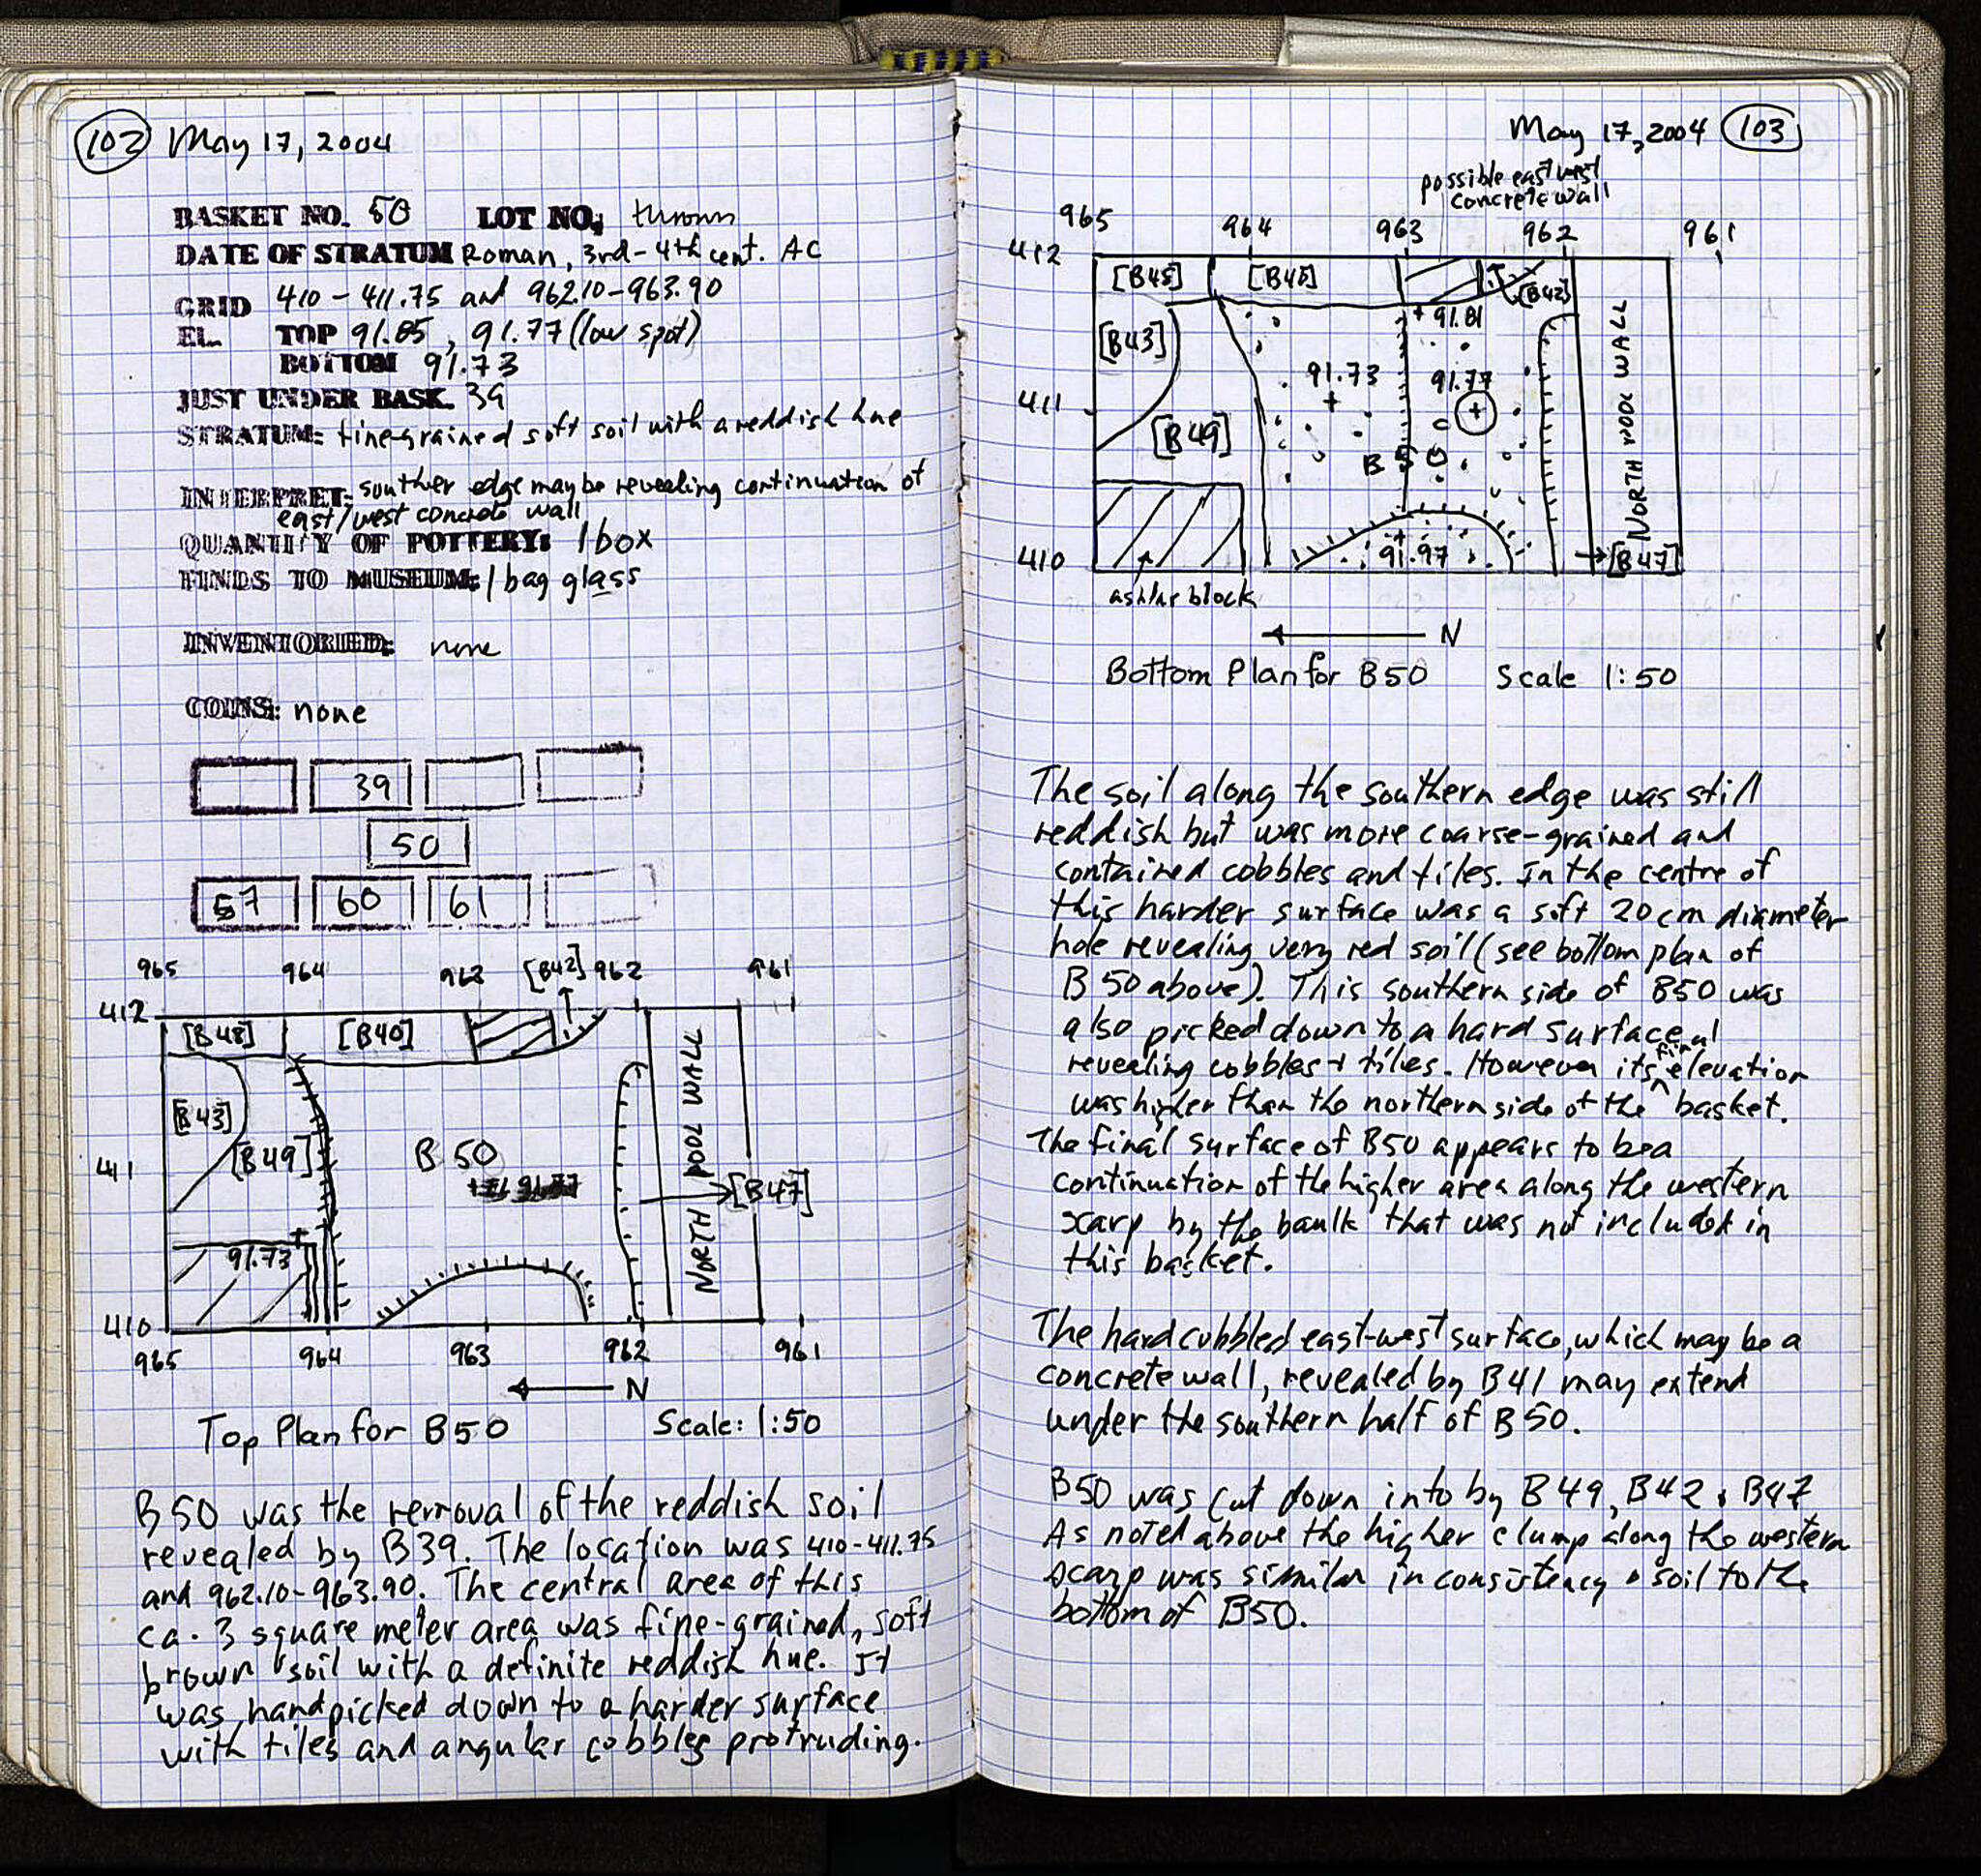 102 May 17, 2004
BASKET NO. 50 LOT NO. thrown
DATE OF STRATUM Roman, 3rd-4th cent. AC
GRID 410-411.75 and 962.10-963.90
EL. TOP 91.85, 91.77 (low spot)
BOTTOM 91.73
JUST UNDER BASK. 39
STRATUM: fine-grained soft soil with a reddish hue
INTERPRET: souther edge may be revealing continuation of
east/west concrete wall
QUANTITY OF POTTERY: 1 box
FINDS TO MUSEUM: 1 bag glass
INVENTORIED: none
COINS: none
39
50
57 60 61
965 964 963 [B42] 962 961
412
[B48] [B40]
[B43]
[B49] B50
411
[B47]
NORTH POOL WALL
91.73
410
965 964 963 962 961
N
Top Plan for B50 Scale: 1:50
B50 was the removal of the reddish soil
revealed by B39. The location was 410-411.75
and 962.10-963.90. The central area of this
ca. 3 square meter area was fine-grained, soft
brown soil with a definite reddish hue. It
was handpicked down to a harder surface
with tiles and angular cobbles protruding.
May 17, 2004 103
possible east west
concrete wall
965 964 963 962 961
412
[B48] [B40] [B42]
91.81
[B43]
91.73 91.77
411
[B49]
B50
NORTH POOL WALL
410
91.97
[B47]
ashlar block
N
Bottom Plan for B50 Scale 1:50
The soil along the southern edge was still
reddish but was more coarse-grained and
contained cobbles and tiles. In the centre of
this harder surface was a soft 20cm diameter
hole revealing very red soil (see bottom plan of
B50 above). This southern side of B50 was
also picked down to a hard surface
revealing cobbles + tiles. However its final elevation
was higher than the northern side of the basket.
The final surface of B50 appears to be a
continuation of the higher area along the western
scarp by the baulk that was not included in
this basket.
The hard cobbled east-west surface, which may be a
concrete wall, revealed by B41 may extend
under the southern half of B50.
B50 was cut down into by B49, B42 + B47
As noted above the higher clump along the western
scarp was similar in consistency + soil to the
bottom of B50.